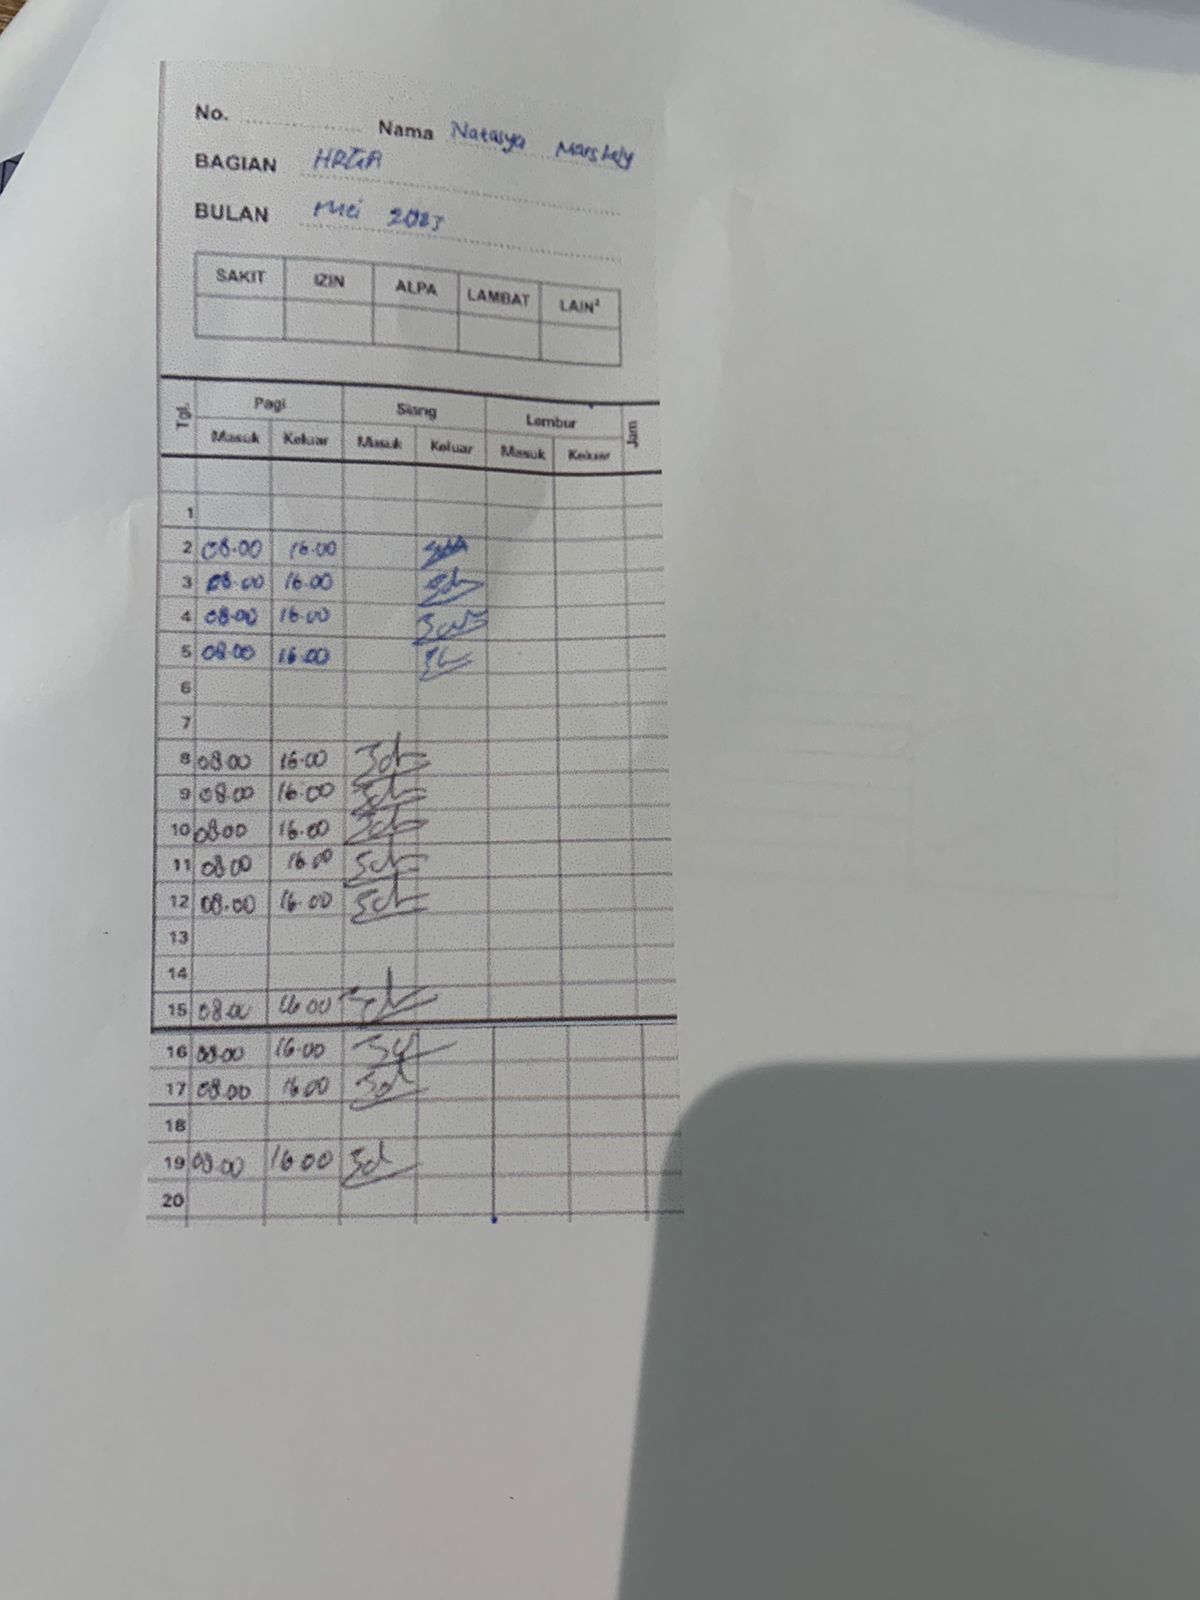 No. Nama Natasya Marshely
BAGIAN HRGA
BULAN Mei 2023
SAKIT IZIN ALPA LAMBAT LAIN²
Tgl. Pagi Siang Lembur Jam
Masuk Keluar Masuk Keluar Masuk Keluar
1
2 08.00 16.00
3 08.00 16.00
4 08.00 16.00
5 08.00 16.00
6
7
8 08.00 16.00
9 08.00 16.00
10 08.00 16.00
11 08.00 16.00
12 08.00 16.00
13
14
15 08.00 16.00
16 08.00 16.00
17 08.00 16.00
18
19 08.00 16.00
20